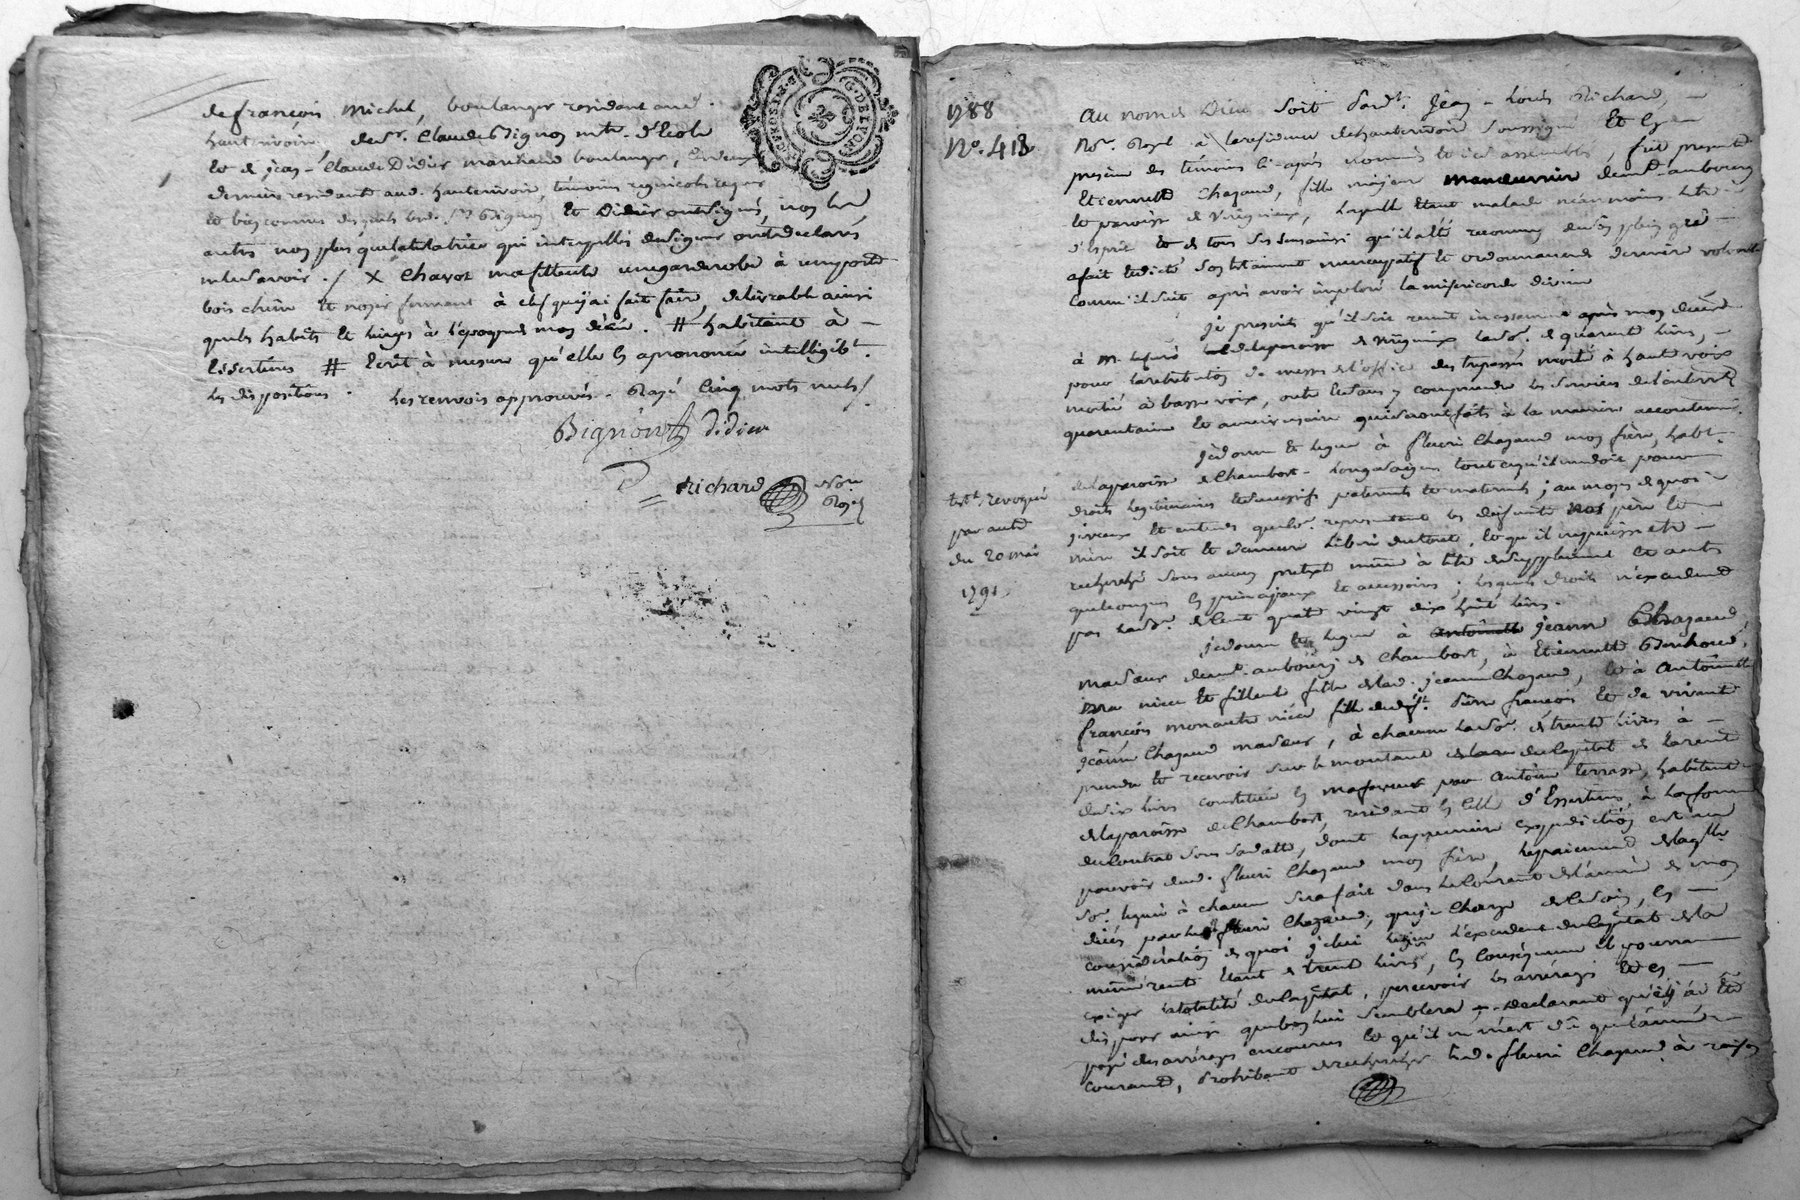 de françois Michel, boulanger residant aud.
hautrivoire, de Sr. Claude Bignon mtre. d'Ecole
et de jean-Claude Didier marchand boulanger, ces deux
derniers residant aud. hautrivoire, témoins requis
et bien connus desquels led. Sr. Bignon et Didier ont signés, non les
autres non plus que la testatrice qui interpellés de signer ont declarés
ne le savoir ./ X Chavot ma filleule une garderobe à une porte
bois chêne et noyer fermant à clef que j'ai fait faire, delivrable ainsi
que les habits et linges à l'époque de mon décés. # habitant à -
Essertines # Ecrit à mesure qu'elle en a prononcé intelligibt.
les dispositions. les renvois approuvés. Rayé Cinq mots nuls /.
Bignon didier
Richard Nore
Royal
G. DE LYON
1788
No. 413
testt. revoqué
par acte
du 20 mai
1791
Au nom de Dieu soit Pardt. Jean-Louis Richard, -
Nore. Royal à la residence de hautrivoire soussigné Et En
presence des témoins ci-après nommés, fut presente
Etiennette Chazaud, fille majeure manouvrière demt. au bourg
et paroisse de Virigneux, laquelle étant malade néanmoins libre
d'esprit et de tous ses sens ainsi qu'il a été reconnu de son plein gré -
a fait et dicté son testament nuncupatif et ordonnance de derniere volonté
Comme il suit après avoir imploré la misericorde divine
je prescris qu'il soit remit incessamment après mon décés
à M. le curé de la paroisse de Virigneux la de quarante livres, -
pour la retribution de messes et l'office des trepassés moitié à haute voix
moitié à basse voix, outre et sans y comprendre les services d'enterrt.
quarantaine et anniversaire qui seront faits à la maniere accoutumée.
je donne et legue à fleuri Chazaud mon frère, habt.
de la paroisse de Chambost-Longesaigne tout ce qu'il me doit pour
droits legitimaires et successifs paternels et maternels; au moyen de quoi
je veux et entends que lui representant les defunts nos père et
mère il soit et demeure liberé du tout, et qu'il n'en puisse etre -
recherché sous aucun pretexte même à titre de supplément et autres
quelconques En principaux et accessoires; lesquels droits n'excedent
pas la de Cent quatre vingt dix huit livres.
je donne et legue à Antoinette jeanne Chazaud,
ma soeur demt. au bourg de Chambost, à Etiennette
ma niece et filleule fille de lad. jeanne Chazaud, et à Antoinette
françois mon autre niéce fille de deft. Pierre françois Et de vivante
jeanne Chazaud ma soeur, à chacune la de trente livres à -
prendre et recevoir sur le montant du Capital de la rente
de six livres constituée En ma faveur par Antoine Terrasse, habitant
de la paroisse de Chambost, residant En celle d'Essertines, à la forme
du Contrat sous sa datte, dont la premiere expedition est au
pouvoir dud. fleuri Chazaud mon frère, le paiement de laqlle
leguée à chacun sera fait dans le Courant de l'année de mon
décés par led. fleuri Chazaud, que je Charge de ce soin, En -
consideration de quoi je lui legue l'excedent du Capital de la
même rente étant de trente livres, En Conséquence il pourra
exiger la totalité du Capital, percevoir les arrérages et en -
disposer ainsi que bon lui semblera - declarant qu'il a été
payé des arrérages encourus et qu'il ne m'est dû que l'année
courante, Prohibant de rechercher led. fleuri Chazaud à raison